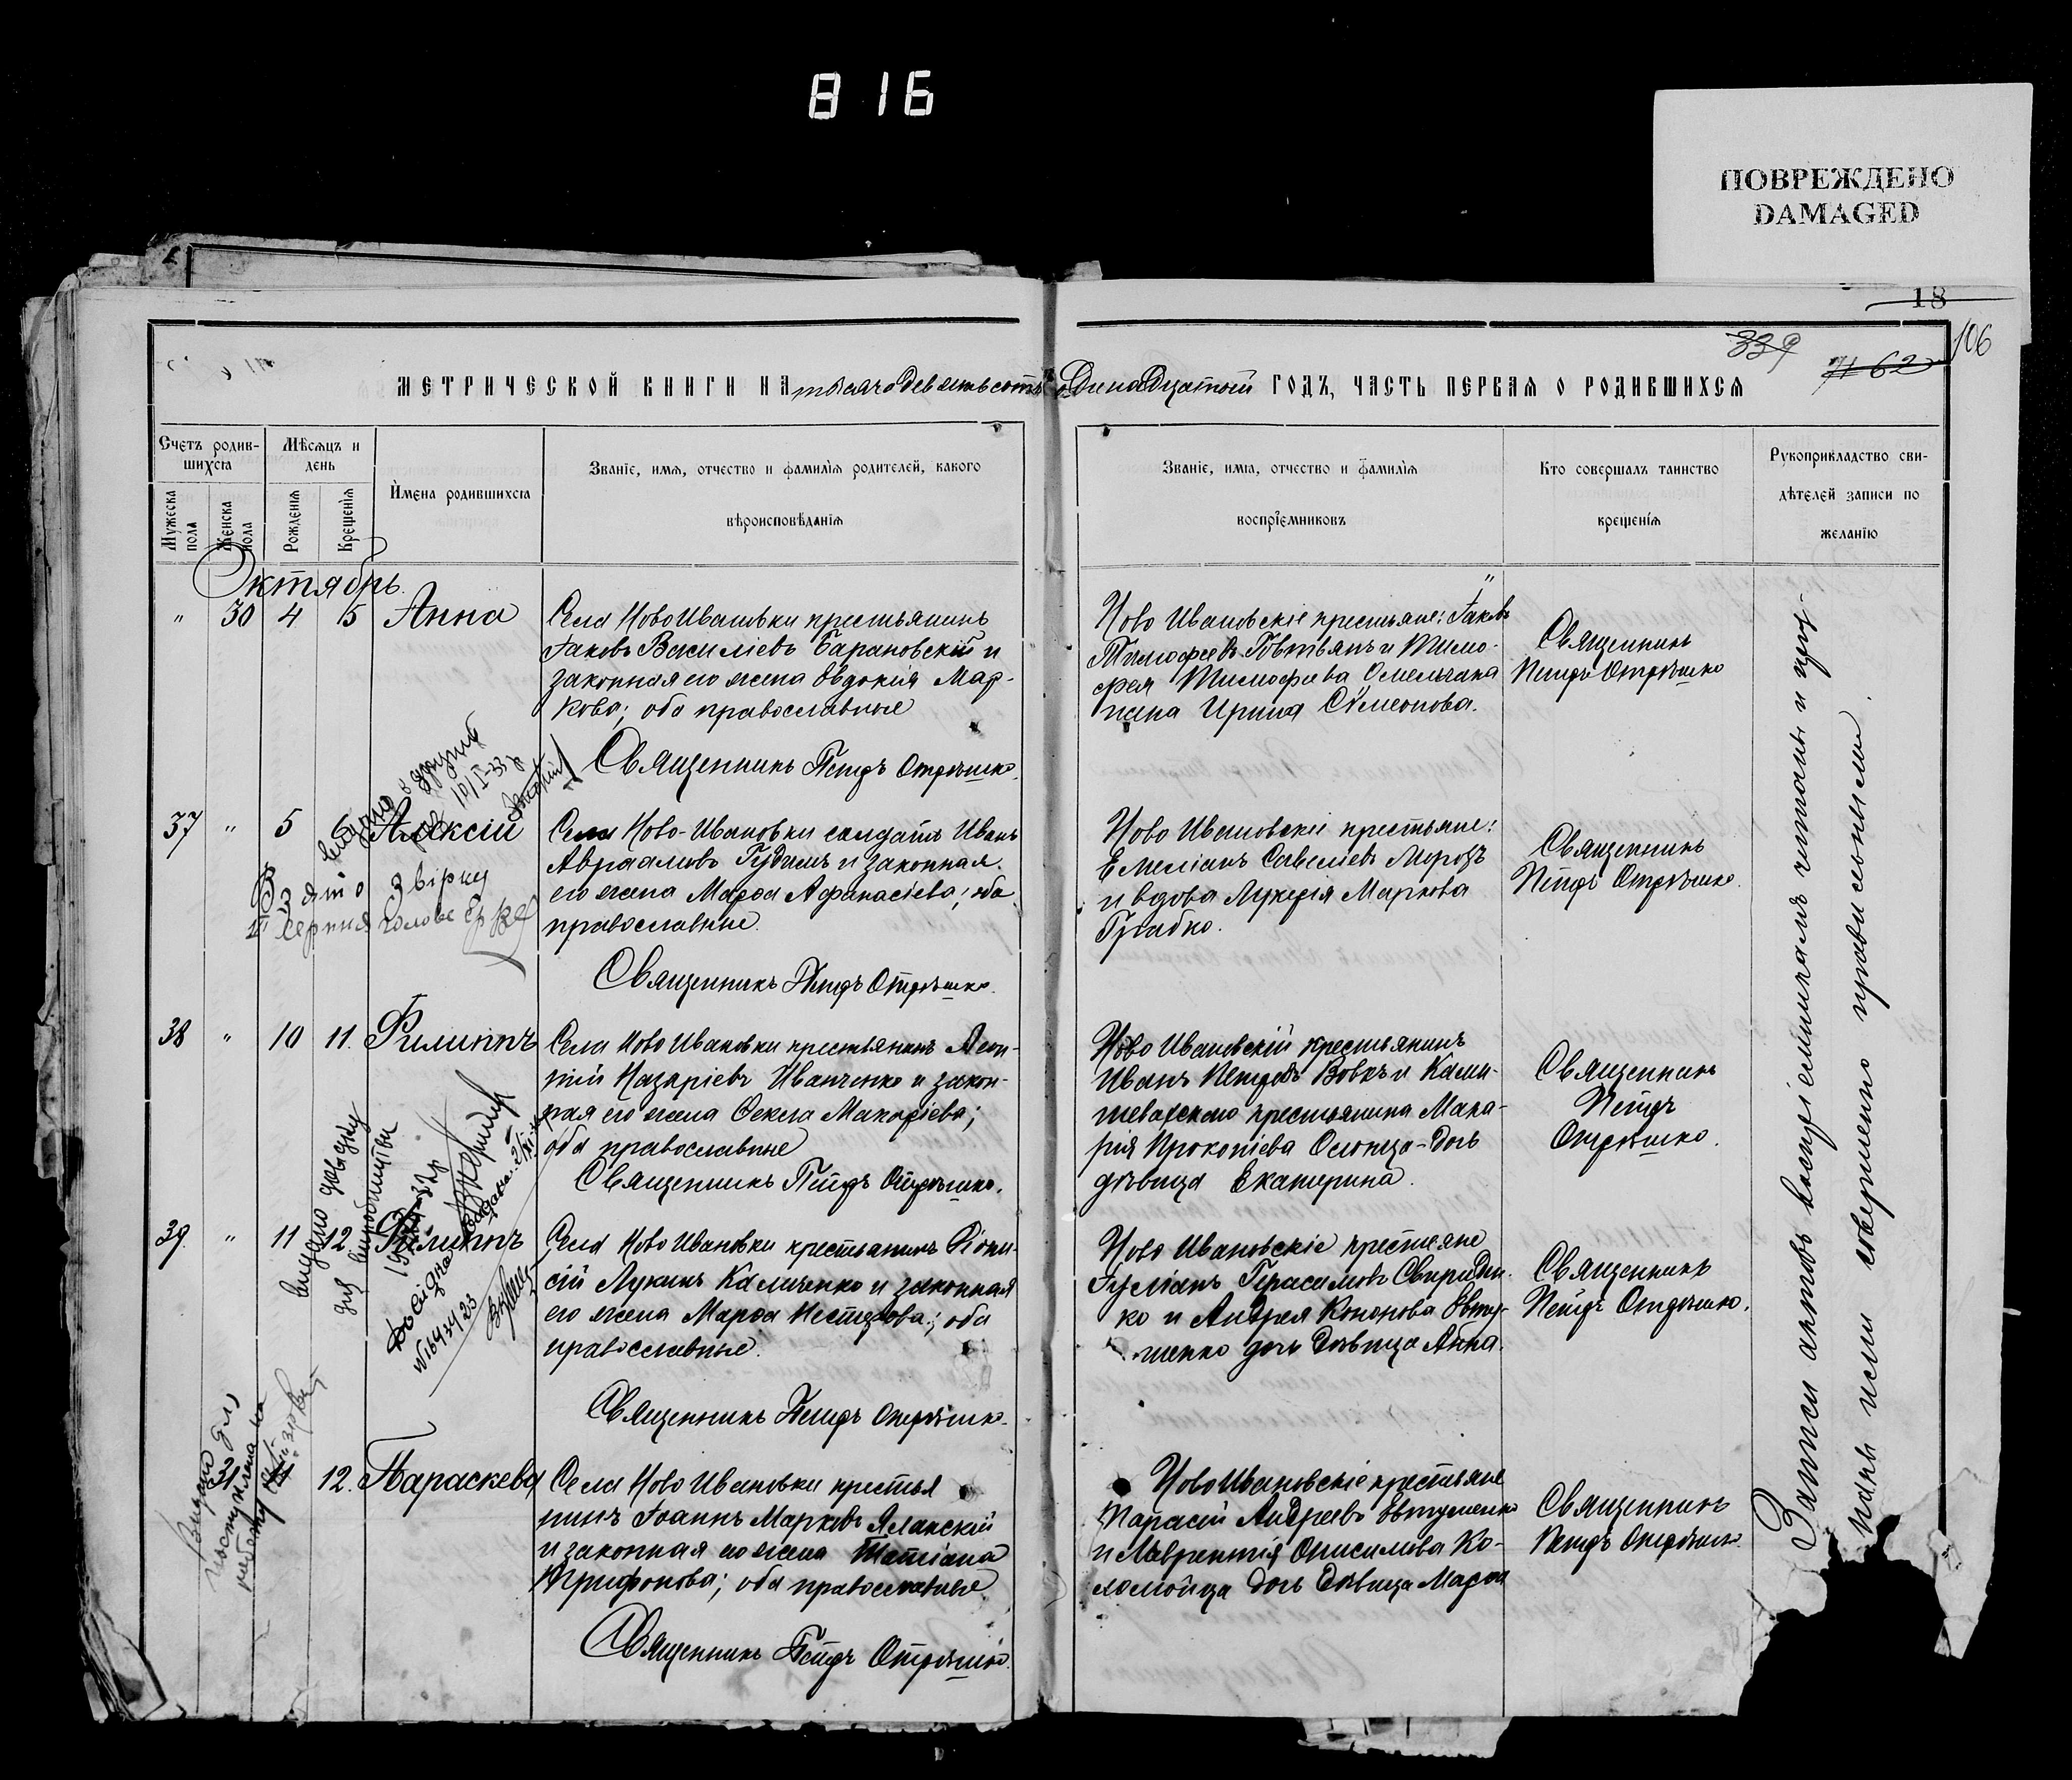 816
ПОВРЕЖДЕНО
DAMAGED
18
106
339
71 62
МЕТРИЧЕСКОЙ КНИГИ НА тысяча девятьсотъ одинадцатый ГОДЪ, ЧАСТЬ ПЕРВАЯ О РОДИВШИХСЯ
Счетъ родив-
шихся
Мужеска
пола
Женска
пола
Мѣсяцъ и
день
Рожденія
Крещенія
Имена родившихся
Званіе, имя, отчество и фамилія родителей, какого
вѣроисповѣданія
Званіе, имя, отчество и фамилія
воспріемниковъ
Кто совершалъ таинство
крещенія
Рукоприкладство сви-
дѣтелей записи по
желанію
Октябрь.
" 30 4 5 Анна
Села Ново Ивановки крестьянинъ
Іаковъ Василіевъ Барановскій и
законная его жена Евдокія Мар-
кова; оба православные
Священникъ Петръ Отрѣшко.
Ново Ивановскіе крестьяне: Іаковъ
Тимофеевъ Говтвянъ и Тимо-
фея Тимофеева Омельчака
Ирина Сѵмеонова.
Священникъ
Петръ Отрѣшко
37 " 5 6 Алексій
Села Ново-Ивановки солдатъ Иванъ
Авраамовъ Гудимъ и законная
его жена Марфа Афанасіева; оба
православные.
Священникъ Петръ Отрѣшко.
Ново Ивановскіе крестьяне:
Емеліанъ Савеліевъ Морозъ
и вдова Лукерія Маркова
Грабко.
Священникъ
Петръ Отрѣшко.
видано
10/I-33 р
Взято з вірку
серпня голова
38 " 10 11. Филиппъ
Села Ново Ивановки крестьянинъ Леон-
тій Назаріевъ Иванченко и закон-
ная его жена Ѳекла Макаріева;
оба православные
Священникъ Петръ Отрѣшко.
Ново Ивановскій крестьянинъ
Иванъ Петровъ Вовкъ и Камы-
шеватскаго крестьянина Мака-
рія Прокопіева дочь
дѣвица Екатерина.
Священникъ
Петръ
Отрѣшко.
39. " 11 12 Филиппъ
Села Ново Ивановки крестьянинъ Діони-
сій Лукинъ Каличенко и законная
его жена Марфа Нестерова; оба
православные.
Священникъ Петръ Отрѣшко.
Ново Ивановскіе крестьяне
Іуліанъ Герасимовъ Свириден-
ко и Андрея Кононова Евту-
шенко дочь дѣвица Анна.
Священникъ
Петръ Отрѣшко.
видано довідку
для
Довідка видана
№ 1643423
31 12. Параскева
Села Ново Ивановки крестья
нинъ Іоаннъ Марковъ Яланскій
и законная его жена Татіана
Трифонова; оба православные
Священникъ Петръ Отрѣшко.
Ново Ивановскіе крестьяне
Тарасій Андреевъ Евтушенко
и Лаврентія Онисимова Ко-
ломойца дочь дѣвица Марфа
Священникъ
Петръ Отрѣшко
Видано для
поступлення на
работу
Записи актовъ воспріемникамъ читаны и
ианы ими совершенно правильными.